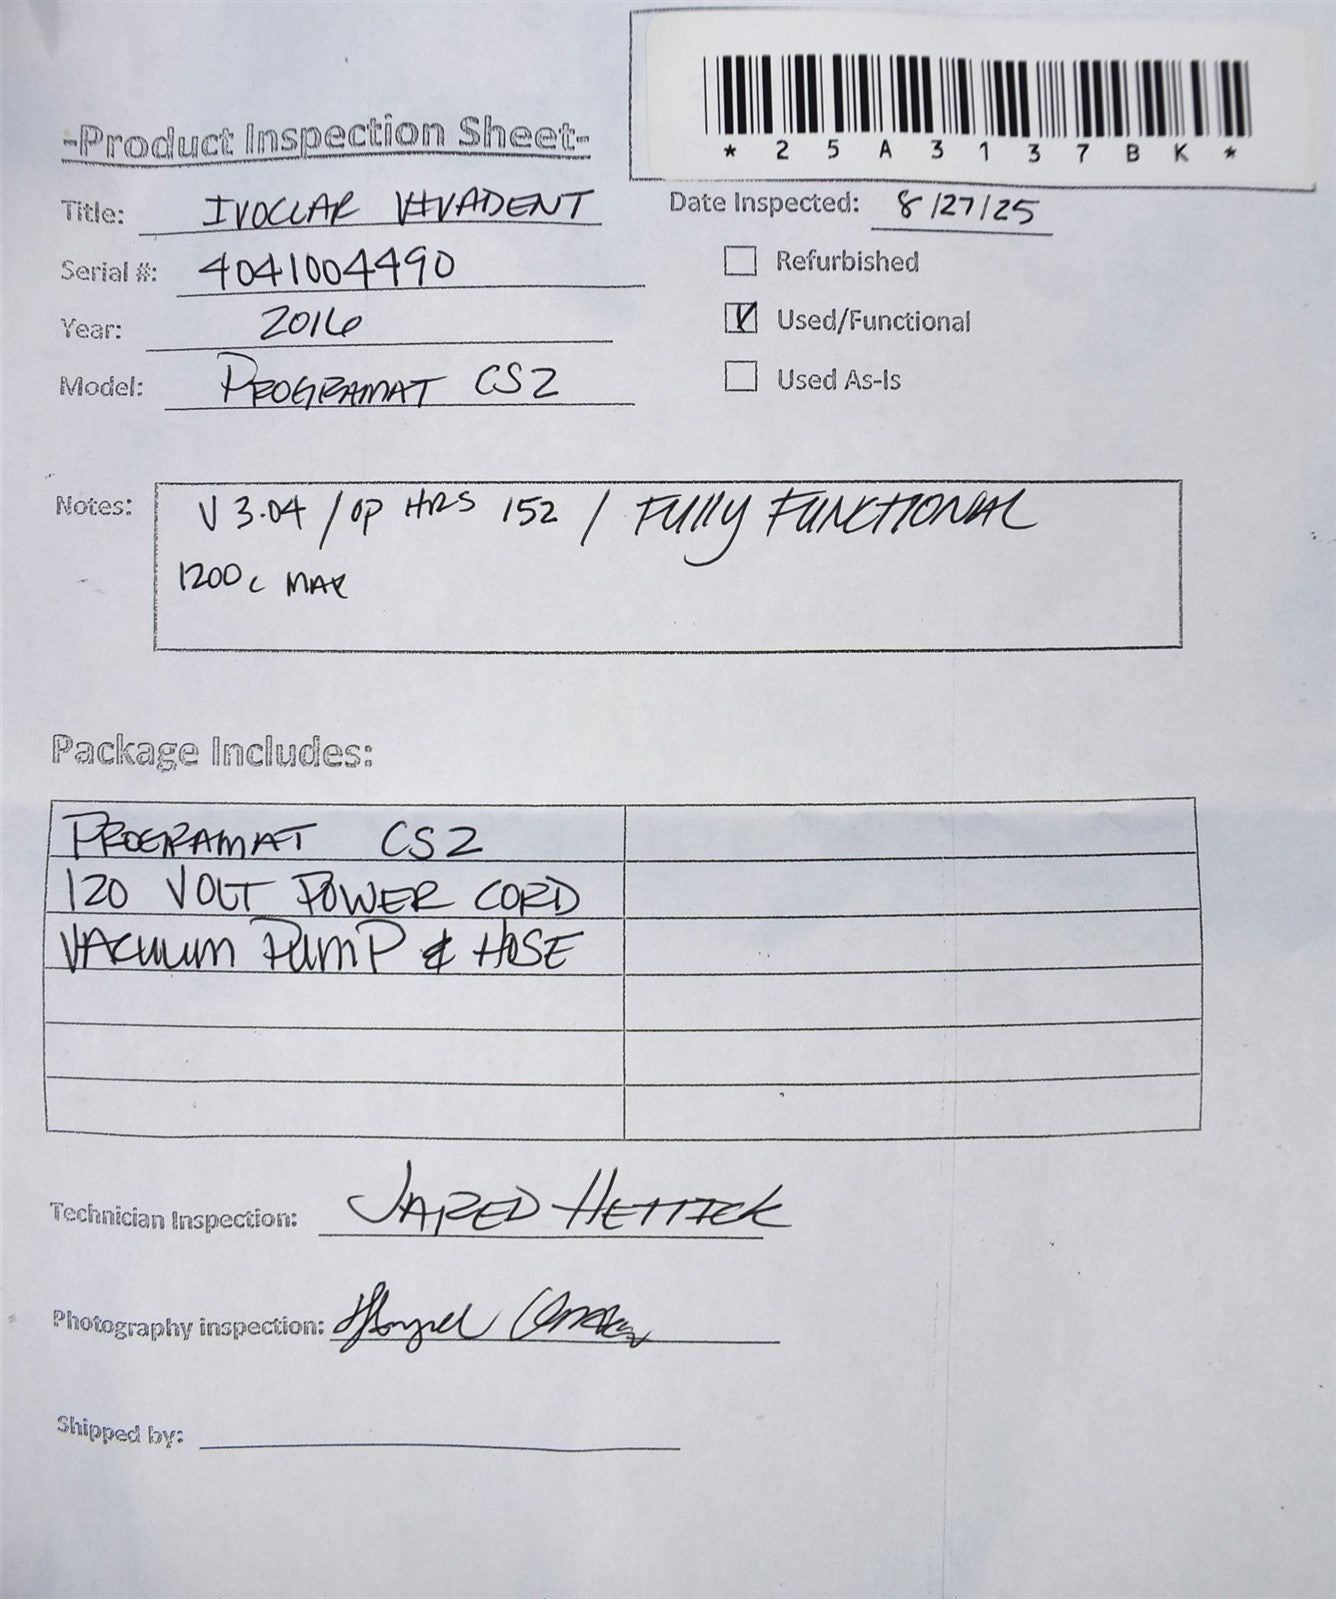 *25A3137BK*
-Product Inspection Sheet-
Title: IVOCLAR VIVADENT
Date Inspected: 8/27/25
Serial #: 4041004490
Refurbished
Year: 2016
Used/Functional
Model: PROGRAMAT CS2
Used As-Is
Notes: V 3.04 / OP HRS 152 / FULLY FUNCTIONAL
1200c MAX
Package Includes:
PROGRAMAT CS2
120 VOLT POWER CORD
VACUUM PUMP & HOSE
Technician Inspection: JARED HETTICK
Photography inspection:
Shipped by: